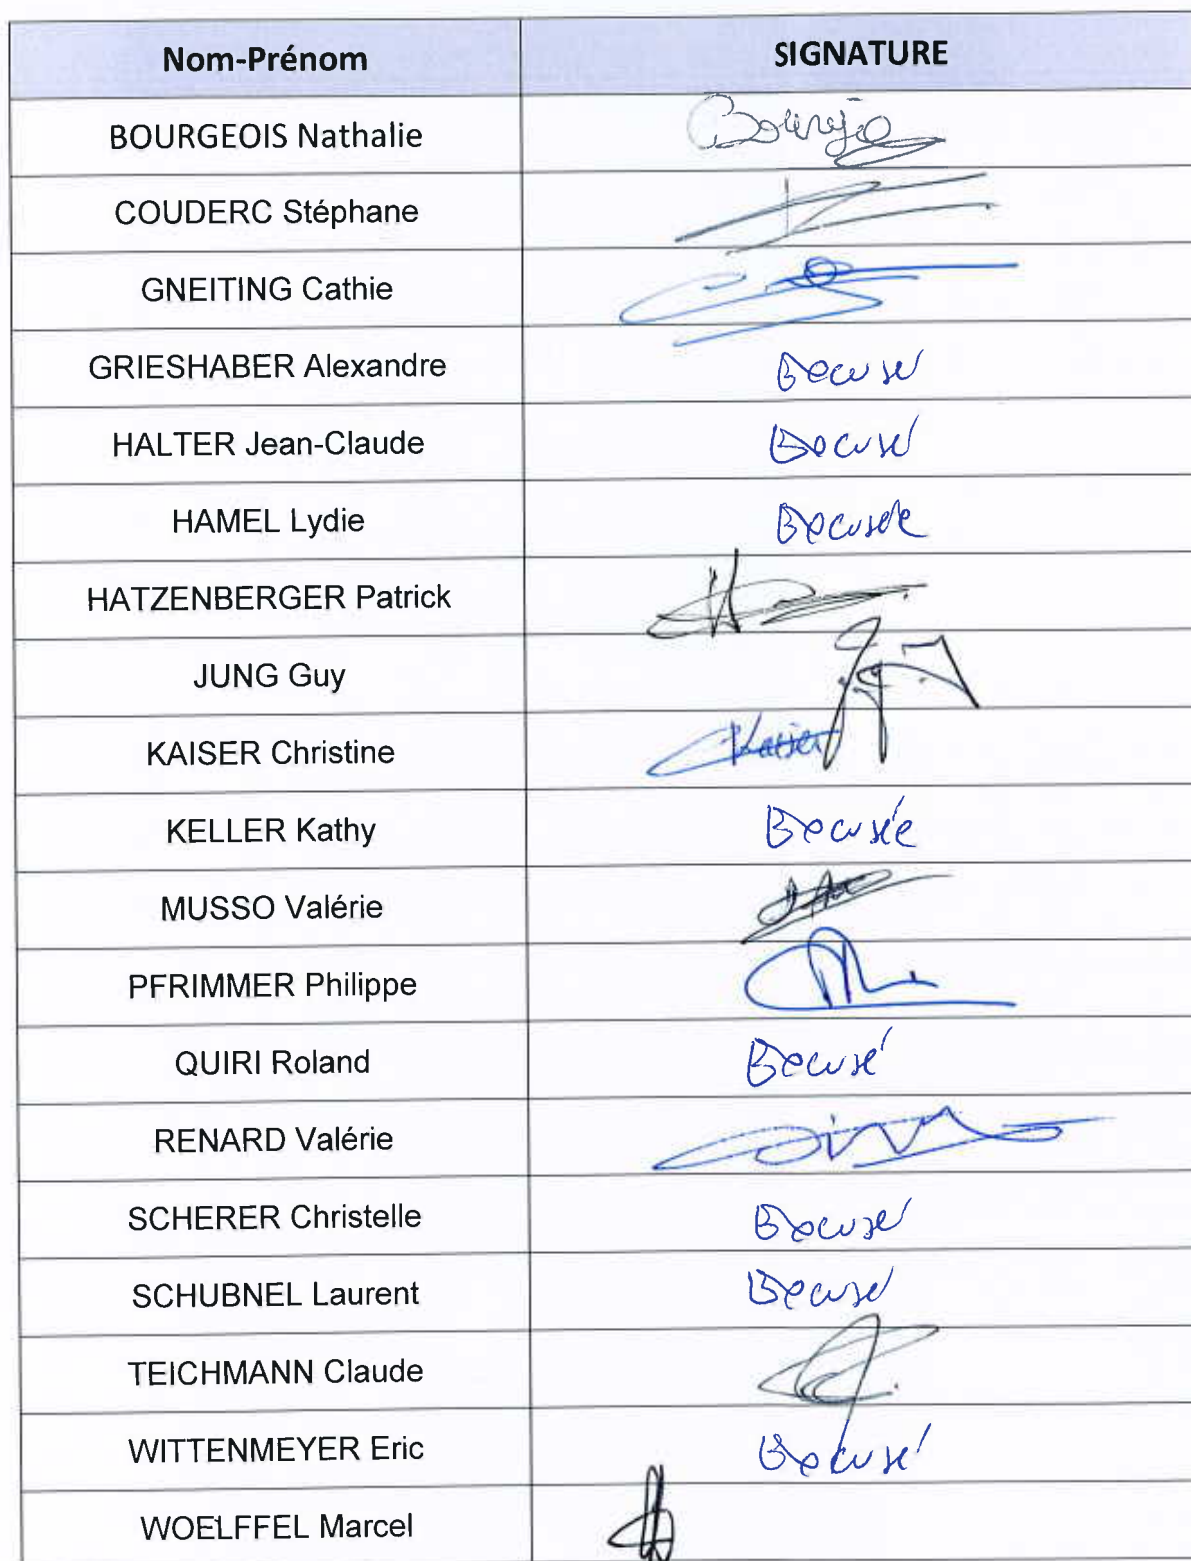 Nom-Prénom SIGNATURE
BOURGEOIS Nathalie
COUDERC Stéphane
GNEITING Cathie
GRIESHABER Alexandre Excusé
HALTER Jean-Claude Excusé
HAMEL Lydie Excusée
HATZENBERGER Patrick
JUNG Guy
KAISER Christine Kaiser
KELLER Kathy Excusée
MUSSO Valérie
PFRIMMER Philippe
QUIRI Roland Excusé
RENARD Valérie
SCHERER Christelle Excusé
SCHUBNEL Laurent Excusé
TEICHMANN Claude
WITTENMEYER Eric Excusé
WOELFFEL Marcel